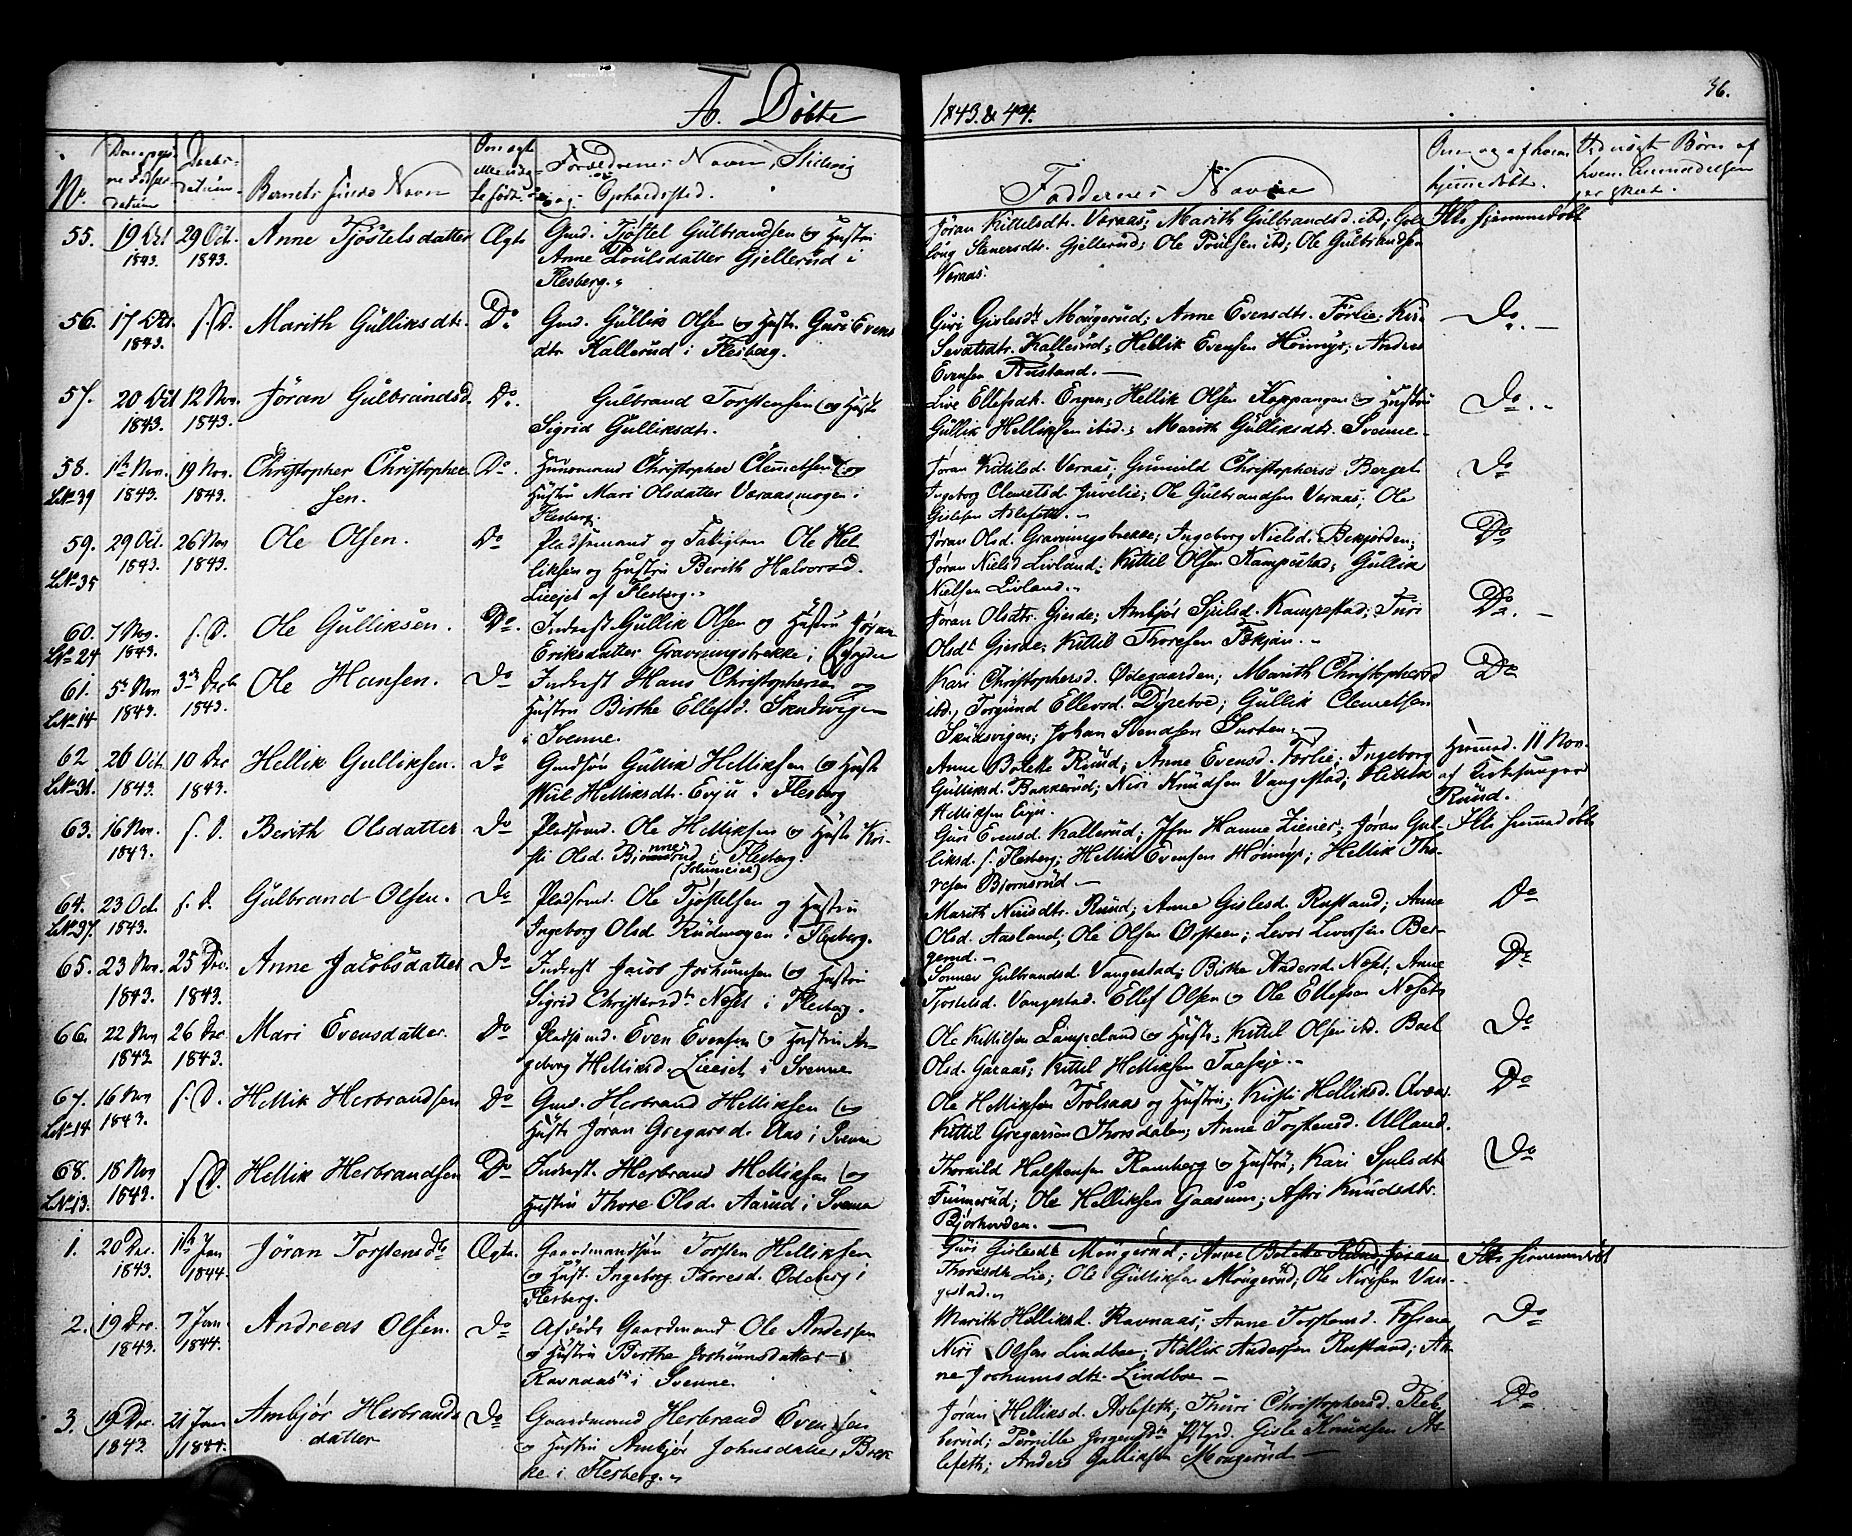 A. Döbte
1843 & 44.
36.
No.
Barnets fulde Navn
Forældrenes Navn, Stilling
og Opholdssted.
Faddernes Navne
55. 19 Oct 1843. 29 Oct. 1843. Anne Tjöstelsdatter Ægte
Gmd. Tjöstel Gulbrandsen og Hustru
Anne Poulsdatter Gjellerud i
Flesberg.
Jöran Kittelsdt. Væraas; Marith Gulbrandsd. ibd; Gol
laug Steners dtr. Gjellerud; Ole Poulsen ibd; Ole Gulbrandsen
Væraas.
Ikke hjemmedöbt
56. 17 Oct. 1843. f. D. Marith Gulliksdtr. Do.
Gmd. Gullik Olsen og Hustr. Guri Evens
dtr. Kallerud i Flesberg.
Guri Gislesdtr Mougerud; Anne Evensdtr. Förlie; Kari
Sevatsdtr. Kallerud; Hellik Evensen Höimyr; Anders
Evensen Rustand.
Do.
57. 20 Oct 1843. 12 Nov. 1843. Jöran Gulbrandsd. Do.
Gulbrand Torstensen og Hustr
Sigrid Gulliksdtr.
Live Ellefsdtr. Engen; Hellik Olsen Koppangen og Hustru
Gullik Helliksen ibid.; Marith Gulliksdtr. Svenne
Do.
58. LNo 39 1ste Nov. 1843. 19 Nov. 1843. Christopher Christopher
sen. Do.
Huusmand Christopher Clemetsen og
Hustru Mari Olsdatter Væraasmogen i
Flesberg.
Jöran Kittilsd. Væraas; Gunvild Christophersd Berget
Ingeborg Clemetsd. Juvelie; Ole Gulbrandsen Væraas; Ole
Gislesen Aslefett.
Do
59. LNo 35 29 Oct. 1843. 26 Nov 1843. Ole Olsen. Do
Pladsemand og Fatiglem Ole Hel
liksen og Hustru Berith Halvorsd.
Lieejet af Flesberg.
Jöran Olsd. Gravningsbrække; Ingeborg Nielsd. Bekjorden;
Jöran Nielsd Livland; Kittil Olsen Kampestad; Gullik
Nielsen Livland.
Do
60. LNo 24 7 Nov. 1843. f. D. Ole Gulliksen. Do.
Inderst Gullik Olsen og Hustru Jöran
Eriksdatter Gravningsbrække i
Jöran Olsdtr. Gjerde; Ambjör Sjulsd. Kampestad; Turi
Olsdt Gjerde; Kittil Thoresen
Do.
61. LNo 14 5te Nov 1843. 3die Decbr 1843. Ole Hansen. Do
Inderst Hans Christophersen og
Hustru Birthe Ellefsd. Skudsvigen
i Svenne.
Kari Christophersd. Ödegaarden; Marith Christophersd
ibd., Torgund Ellevsd. Dyreboe; Gullik Clemetsen
Skudsvigen; Johan Svendsen
Do
62 LNo 31. 26 Oct. 1843. 10 Dec 1843. Hellik Gulliksen. Do
Gmdsön Gullik Helliksen og Hustr
Helliksdtr. Evju i Flesberg
Anne Bolette Ruud; Anne Evensd. Förlie; Ingeborg
Gulliksd. Bakkerud; Niri Knudsen Vangestad; Hellik
Helliksen Evju.
Hjemmed. 11 Nov.
af Kirkesanger
Ruud.
63. 16 Nov. 1843. f. D. Berith Olsdatter Do
Pladsmd. Ole Helliksen og Hustr. Kri
sti Olsd. Björnsrud i Flesberg.
Guri Evensd. Kallerud; Jfr. Hanne Ziener; Jöran Gul
liksd. f. Flesberg; Hellik Evensen Höimyr; Hellik Tho
resen Björnsrud
Ikke hjemmedöbt
64. LNo 37. 23 Oct. 1843. f. D. Gulbrand Olsen. Do
Pladsmd. Ole Tjöstelsen og Hustru
Ingeborg Olsd. Rudmogen i Flesberg.
Marith Nirisdtr. Ruud; Anne Gislesd. Rustand; Anne
Olsd. Aasland; Ole Olsen Örsteen; Levor Levorsen Ber
germd.
Do
65. 23 Nov. 1843. 25 Dec. 1843. Anne Jacobsdatter Do
Inderst Jacob Jochumsen og Hustru
Sigrid Christensdtr Næset i Flesberg.
Sönnev Gulbrandsd. Vangestad; Birthe Andersd. Næset, Anne
Tjöstelsd. Vangestad. Ellef Olsen og Ole Ellefsen Næset
Do
66. 22 Nov 1843 26 Dec 1843. Mari Evensdatter. Do
Pladsmd. Even Evensen og Hustru In
geborg Helliksd. Lieejet i Svenne
Ole Kittilsen Lampeland og Hustr; Kittil Olsen ibd. Boel
Olsd. Garaas; Kittil Helliksen Taaskje.
Do
67. LNo 14 16 Nov 1843. f. D. Hellik Herbrandsen Do
Gmd. Herbrand Helliksen og
Hustr Jöran Gregarsd. Aas i Svenne
Ole Helliksen Trolsaas og Hustru; Kirsti Helliksd.
Kittil Gregarsen Thorsdalen; Anne Torstensd. Ulland.
Do
68. LNo 13. 18 Nov 1843. f. D. Hellik Herbrandsen Do
Inderst. Herbrand Helliksen og
Hustru Thore Olsd. Aarud i Svenne
Thorvild Halstensen Ramberg og Hustru; Kari Sjulsdtr
Funnerud; Ole Helliksen Gaasum; Astri Knudsdtr.
Björhovden.
Do
1. 20 Dec. 1843. 1ste Jan 1844. Jöran Torstensdtr Ægte.
Gaardmandsön Torsten Helliksen
og Hustr. Ingeborg Thoresd. Ödeberg i
Flesberg.
Guri Gislesdt Mougerud; Anne Bolette Ruud; Jöran
Thoresdtr Lie; Ole Gulliksen Mougerud; Ole Nirisen Van
gestad.
Ikke hjemmedöbt
2. 19 Dec. 1843. 7 Jan. 1844. Andreas Olsen. Do
Afdöde Gaardmand Ole Andersen
og Hustru Birthe Jochumsdatter
Ravnaas i Svenne.
Marith Helliksd. Ravnaas; Anne Torstensd. Fosnæs
Niri Olsen Lindboe; Hellik Andersen Rustand; An
ne Jochumsdtr. Lindboe
Do
3. 19 Dec. 1843. 21 Jan 1844. Ambjör Herbrands
datter Do
Gaardmand Herbrand Evensen
og Hustru Ambjör Johnsdatter Bræk
ke i Flesberg.
Jöran Helliksd. Aslefett; Thuri Christophersd. Fleb
berud; Pernille Jörgensdtr Gisle Knudsen As
lefett; Anders Gulliksen Mougerud
Do